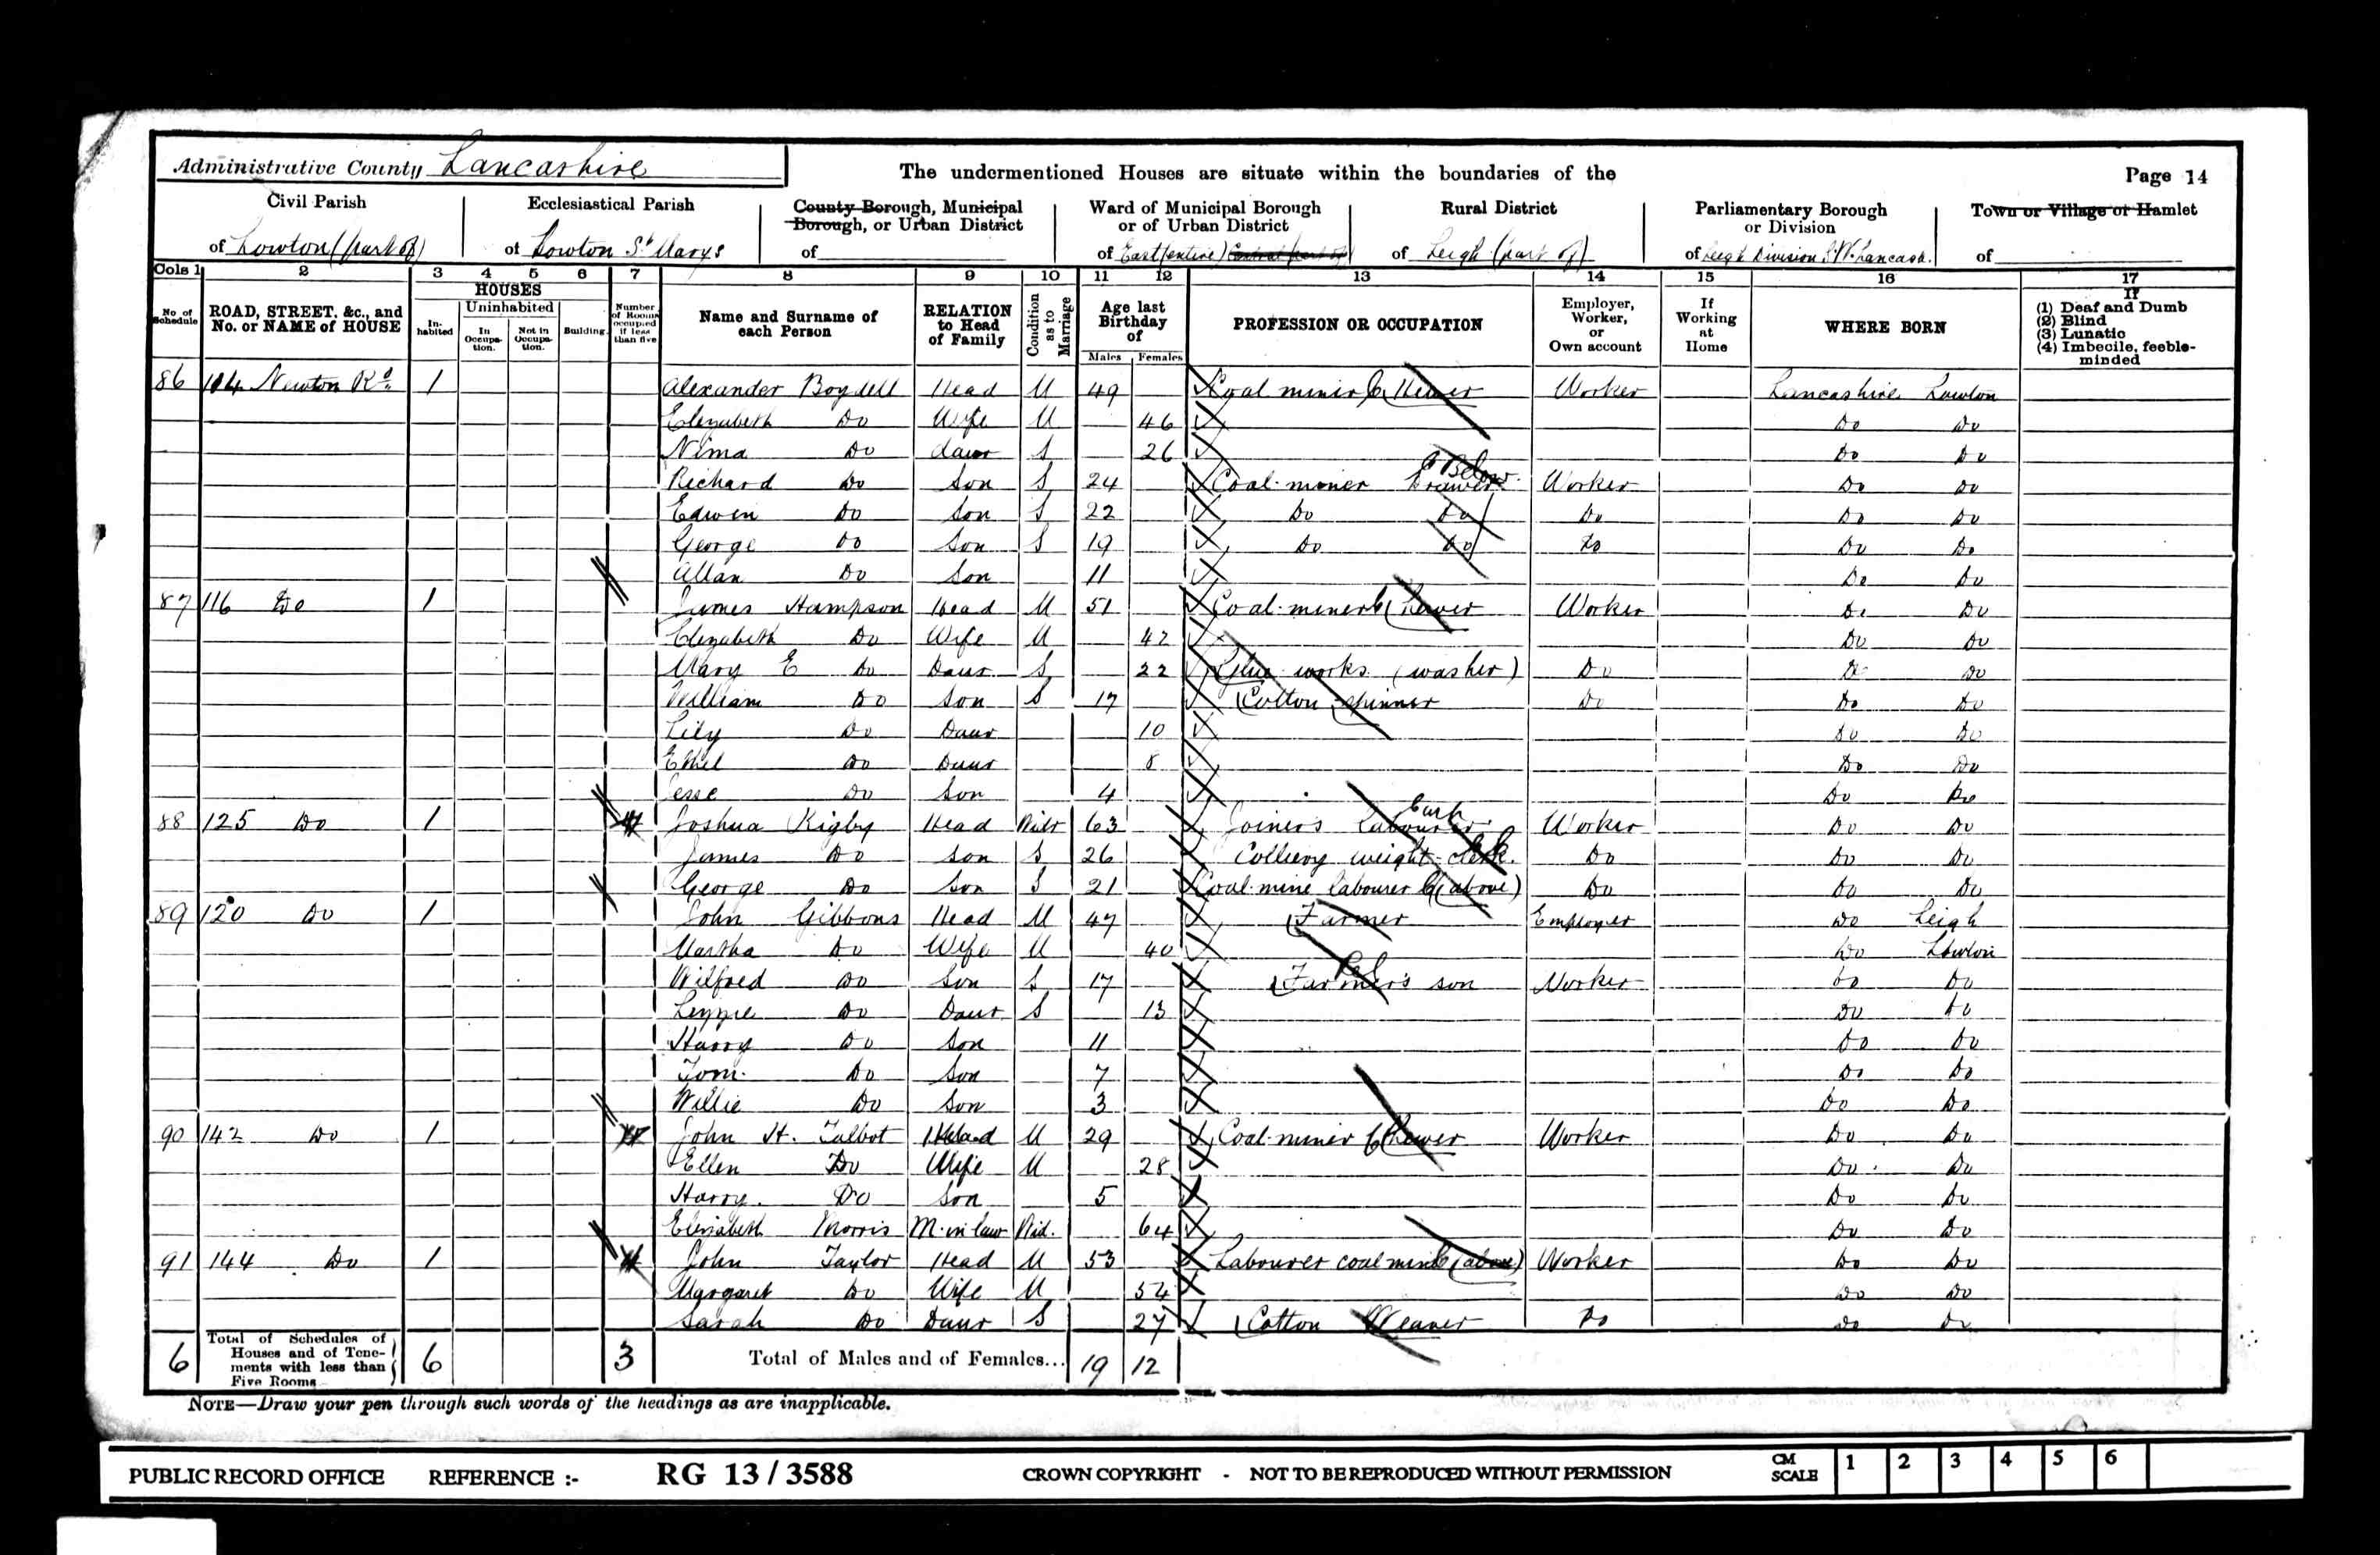 Administrative County Lancashire
The undermentioned Houses are situate within the boundaries of the
Page 14
Civil Parish
of Lowton (part of)
Ecclesiastical Parish
of Lowton St Marys
County Borough, Municipal Borough, or Urban District
of
Ward of Municipal Borough or of Urban District
of East (entire) Central (part of)
Rural District
of Leigh (part of)
Parliamentary Borough or Division
of Leigh Division S.W. Lancash.
Town or Village or Hamlet
of
Cols 1 2 3 4 5 6 7 8 9 10 11 12 13 14 15 16 17
No of Schedule
ROAD, STREET, &c., and No. or NAME of HOUSE
HOUSES
In-habited
Uninhabited
In Occupa-tion.
Not in Occupa-tion.
Building
Number of Rooms occupied if less than five
Name and Surname of each Person
RELATION to Head of Family
Condition as to Marriage
Age last Birthday of
Males Females
PROFESSION OR OCCUPATION
Employer, Worker, or Own account
If Working at Home
WHERE BORN
If
(1) Deaf and Dumb
(2) Blind
(3) Lunatic
(4) Imbecile, feeble-minded
86 Newton Rd 1 Alexander Boydell Head M 49 Coal miner Hewer Worker Lancashire Lowton
Elizabeth Do Wife M 46 Do Do
Nima Do daur S 26 Do Do
Richard Do Son S 24 Coal miner Drawer Below Worker Do Do
Edwin Do Son S 22 Do Do Do Do Do
George Do Son S 19 Do Do Do Do Do
Allan Do Son 11 Do Do
87 116 Do 1 James Hampson Head M 51 Coal miner hewer Worker Do Do
Elizabeth Do Wife M 42 Do Do
Mary E Do Daur S 22 Glue works (washer) Do Do Do
William Do Son S 17 Cotton spinner Do Do Do
Lily Do Daur 10 Do Do
Ethel Do Daur 8 Do Do
Jesse Do Son 4 Do Do
88 125 Do 1 Joshua Rigby Head Widr 63 Joiners labourer Worker Do Do
James Do Son S 26 Colliery weight clerk. Do Do Do
George Do Son S 21 Coal mine labourer (above) Do Do Do
89 120 Do 1 John Gibbons Head M 47 Farmer Employer Do Leigh
Martha Do Wife M 40 Do Lowton
Wilfred Do Son S 17 Farmer's son Worker Do Do
Lizzie Do Daur S 13 Do Do
Harry Do Son 11 Do Do
Tom Do Son 7 Do Do
Willie Do Son 3 Do Do
90 142 Do 1 John H. Talbot Head M 29 Coal miner hewer Worker Do Do
Ellen Do Wife M 28 Do Do
Harry Do Son 5 Do Do
Elizabeth Morris M. in law Wid. 64 Do Do
91 144 Do 1 John Taylor Head M 53 Labourer coal mine (above) Worker Do Do
Margaret Do Wife M 54 Do Do
Sarah Do Daur S 27 Cotton Weaver Do Do Do
6 Total of Schedules of Houses and of Tene-ments with less than Five Rooms 6 3 Total of Males and of Females... 19 12
NOTE—Draw your pen through such words of the headings as are inapplicable.
PUBLIC RECORD OFFICE REFERENCE :- RG 13/3588 CROWN COPYRIGHT - NOT TO BE REPRODUCED WITHOUT PERMISSION CM SCALE 1 2 3 4 5 6